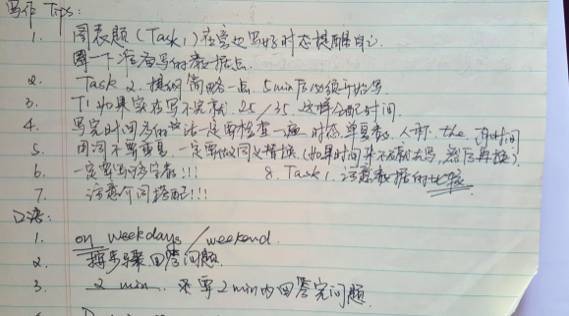 写作 Tips:
1. 图表题(Task 1)在旁边写好时态提醒自己
圈一下准备写的数据点.
2. Task 2. 提纲简略一点. 5min后必须开始写
3. T1 如果实在写不完就. 25/35. 这样分配时间.
4. 写完时间多的话一定要检查一遍 时态, 单复数, 人称. the. 有时间
5. 用词不要重复. 一定要做同义替换(如果时间来不及就先写, 然后再换).
6. 一定要写够字数!!! 8. Task 1. 注意数据的比较
7. 注意介词搭配!!!
口语:
1. on weekdays / weekend.
2. 按步骤回答问题.
3. 2 min. 不要2min内回答完问题.